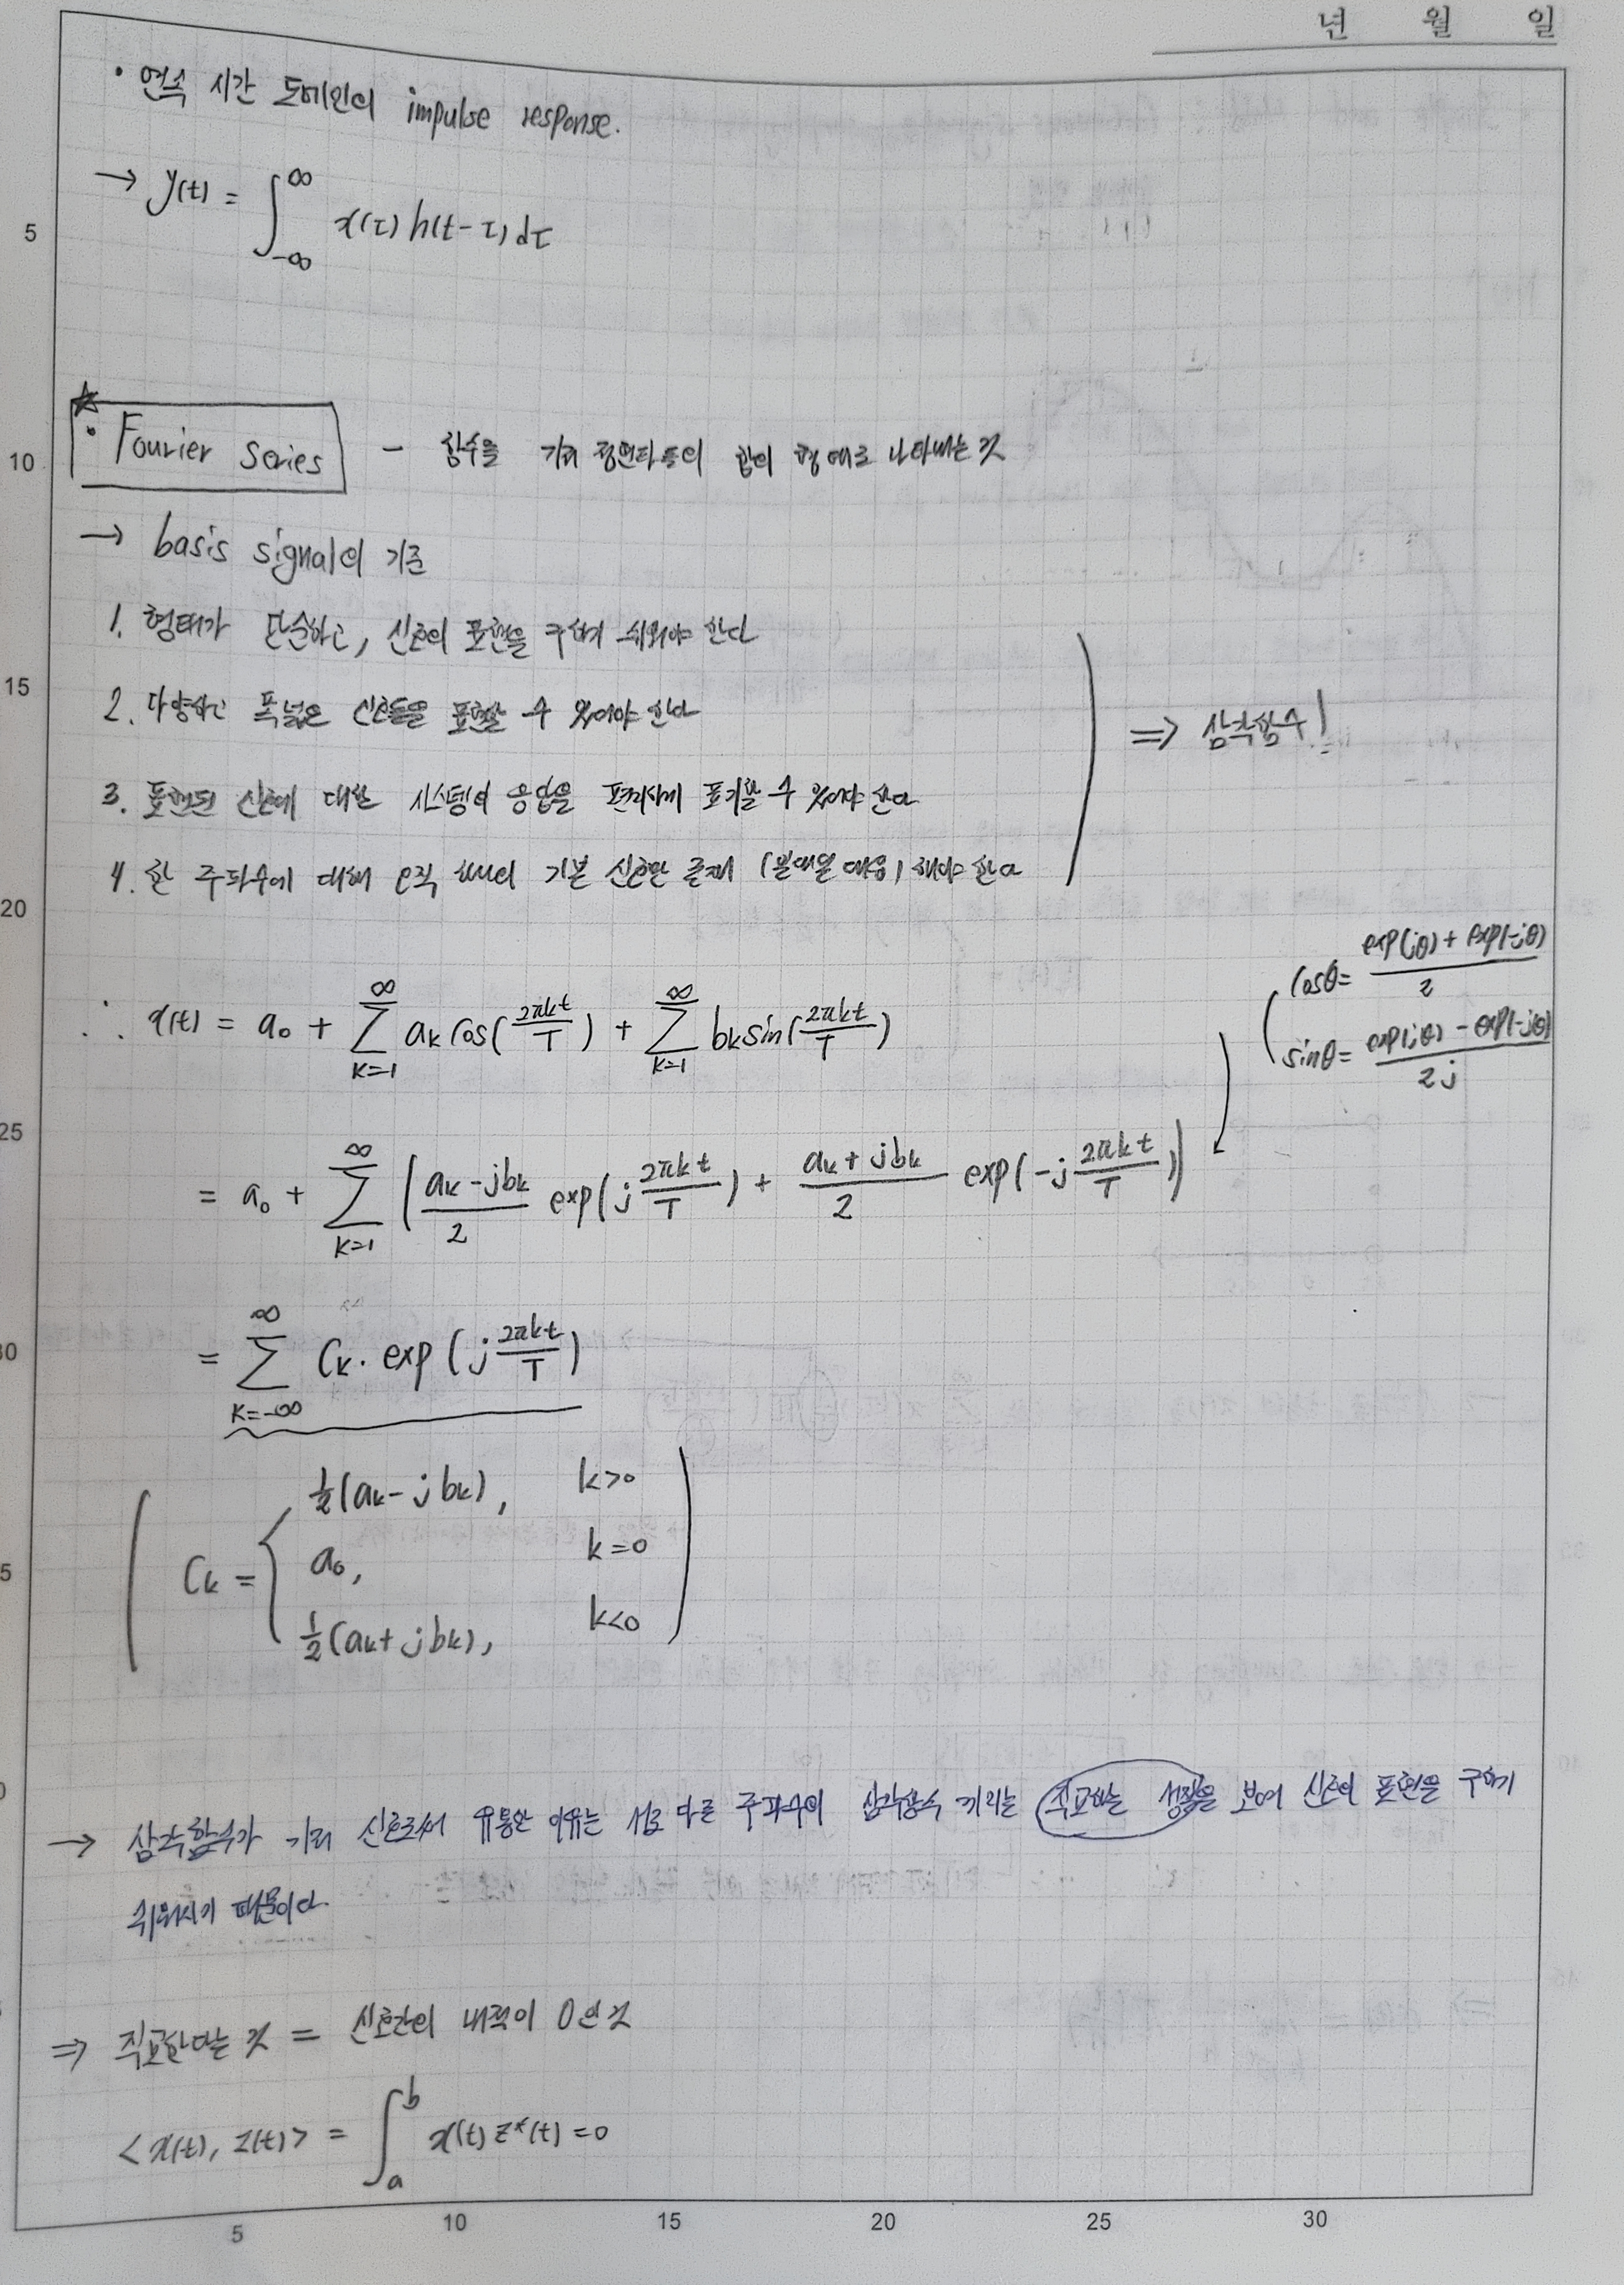 년 월 일
• 연속 시간 도메인의 impulse response.
→ y(t) = ∫_{-∞}^{∞} x(τ) h(t-τ) dτ
5
☆
• Fourier Series - 함수를 기저 정현파들의 합의 형태로 나타내는 것
10
→ basis signal의 기준
1. 형태가 단순하고, 신호의 표현을 구하기 쉬워야 한다
15
2. 다양하고 폭넓은 신호들을 표현할 수 있어야 한다
⇒ 삼각함수!
3. 표현된 신호에 대한 시스템의 응답을 편리하게 표기할 수 있어야 한다
4. 한 주파수에 대해 오직 하나의 기본 신호만 존재 (일대일 대응) 해야 한다
20
cosθ = (exp(jθ) + exp(-jθ))/2
∴ x(t) = a₀ + ∑_{k=1}^{∞} aₖ cos(2πkt/T) + ∑_{k=1}^{∞} bₖ sin(2πkt/T)
sinθ = (exp(jθ) - exp(-jθ))/2j
25
= a₀ + ∑_{k=1}^{∞} ((aₖ - jbₖ)/2 exp(j 2πkt/T) + (aₖ + jbₖ)/2 exp(-j 2πkt/T))
= ∑_{k=-∞}^{∞} Cₖ · exp(j 2πkt/T)
½(aₖ - jbₖ), k>0
Cₖ = { a₀, k=0
½(aₖ + jbₖ), k<0
→ 삼각함수가 기저 신호로써 유용한 이유는 서로 다른 주파수의 삼각함수 끼리는 직교하는 성질을 보여 신호의 표현을 구하기
쉬워지기 때문이다.
⇒ 직교한다는 것 = 신호간의 내적이 0인 것
<x(t), z(t)> = ∫_{a}^{b} x(t) z*(t) = 0
5 10 15 20 25 30